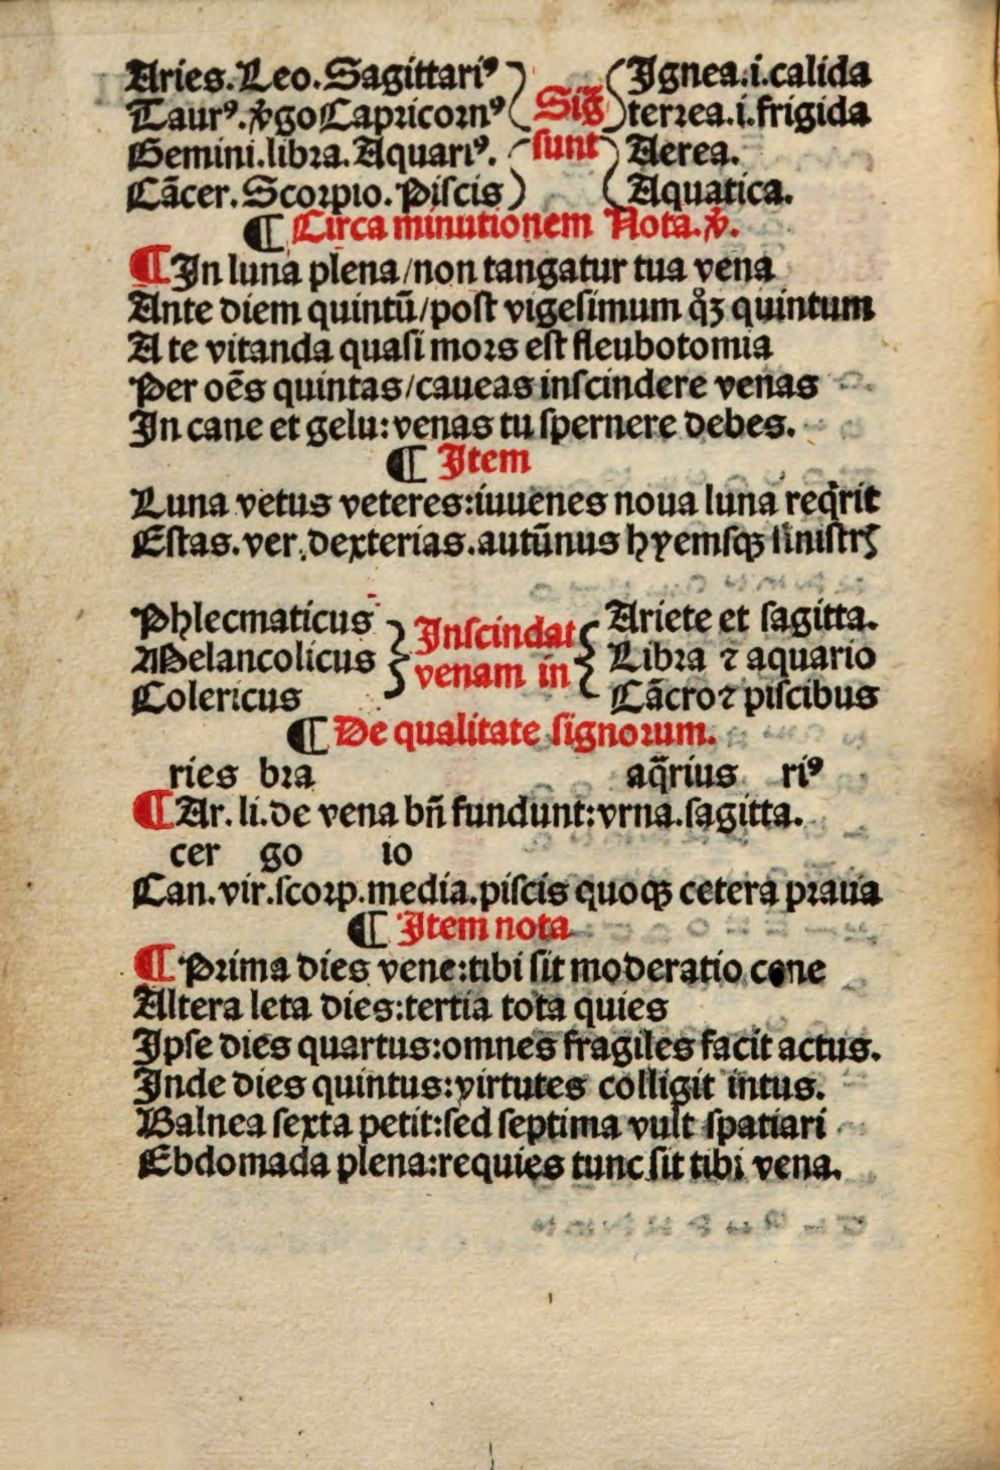 Aries. Leo. Sagittariꝰ Ignea.i.calida
Taurꝰ. v̾go Capricornꝰ Sig̃ terrea.i.frigida
Gemini.libra.Aquariꝰ. sunt Aerea.
Cãcer. Scorpio. Piscis Aquatica.
¶ Circa minutionem Nota. v̾.
¶ In luna plena/non tangatur tua vena
Ante diem quintũ/post vigesimum qͦꝫ quintum
A te vitanda quasi mors est fleubotomia
Per oẽs quintas/caueas inscindere venas
In cane et gelu: venas tu spernere debes.
¶ Item
Luna vetus veteres:iuuenes noua luna reqͥrit
Estas.ver.dexterias.autũnus hyemsqꝫ sinistrꝭ
Phlecmaticus Inscindat Ariete et sagitta.
Melancolicus venam in Libra ⁊ aquario
Colericus Cãcro ⁊ piscibus
¶ De qualitate signorum.
ries bra aq̃rius riꝰ
¶ Ar. li. de vena bñ fundunt: vrna.sagitta.
cer go io
Can. vir. scorp. media. piscis quoqꝫ cetera praua
¶ Item nota
¶ Prima dies vene:tibi sit moderatio cene
Altera leta dies:tertia tota quies
Ipse dies quartus:omnes fragiles facit actus.
Inde dies quintus:virtutes colligit intus.
Balnea sexta petit:sed septima vult spatiari
Ebdomada plena:requies tunc sit tibi vena.